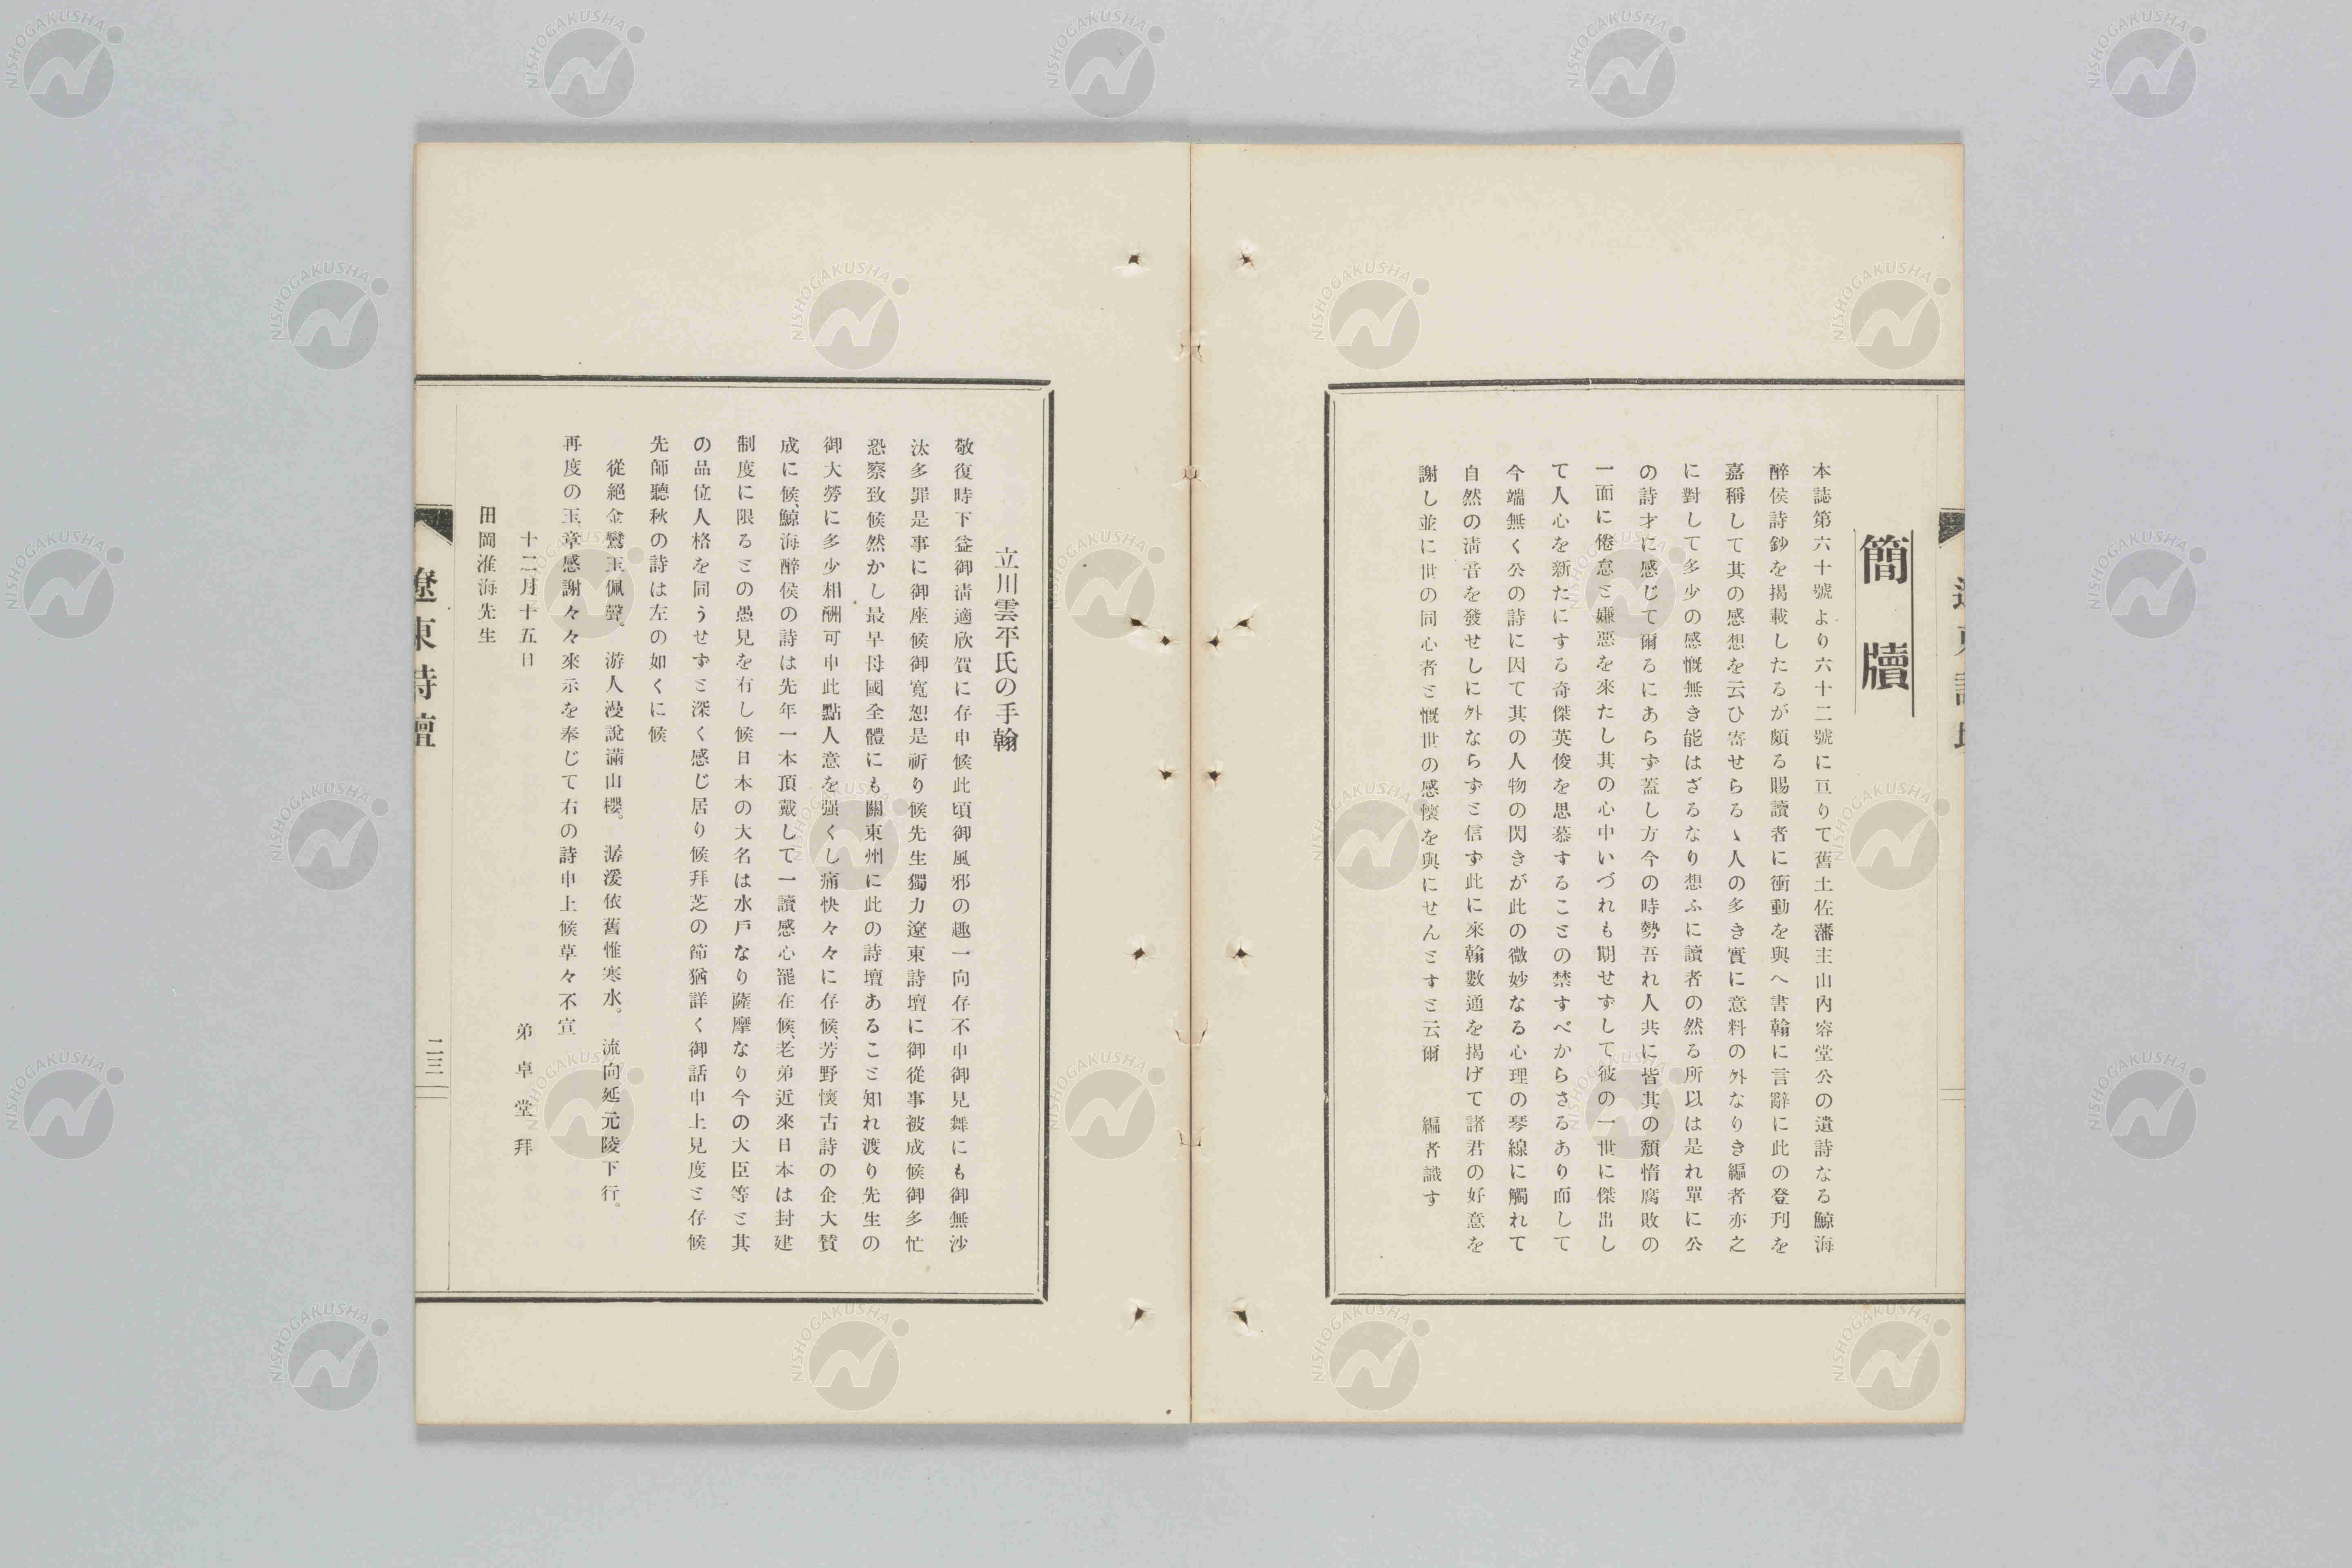 簡牘
本誌第六十號より六十二號に亘りて舊土佐藩主山內容堂公の遺詩なる鯨海
醉侯詩鈔を揭載したるが頗る賜讀者に衝動を與へ書翰に言辭に此の登刊を
嘉稱して其の感想を云ひ寄せらるゝ人の多き實に意料の外なりき編者亦之
に對して多少の感慨無き能はざるなり想ふに讀者の然る所以は是れ單に公
の詩才に感じて爾るにあらず蓋し方今の時勢吾れ人共に皆其の頽惰腐敗の
一面に倦怠と嫌惡を來たし其の心中いづれも期せずして彼の一世に傑出し
て人心を新たにする奇傑英俊を思慕することの禁すべからさるあり而して
今端無く公の詩に因て其の人物の閃きが此の微妙なる心理の琴線に觸れて
自然の淸音を發せしに外ならずと信ず此に來翰數通を揭げて諸君の好意を
謝し並に世の同心者と慨世の感懷を與にせんとすと云爾 編者識す
立川雲平氏の手翰
敬復時下益御淸適欣賀に存申候此頃御風邪の趣一向存不申御見舞にも御無沙
汰多罪是事に御座候御寬恕是祈り候先生獨力遼東詩壇に御從事被成候御多忙
恐察致候然かし最早母國全體にも關東州に此の詩壇あること知れ渡り先生の
御大勞に多少相酬可申此點人意を强くし痛快々々に存候、芳野懷古詩の企大贊
成に候、鯨海醉侯の詩は先年一本頂戴して一讀感心罷在候、老弟近來日本は封建
制度に限るとの愚見を有し候日本の大名は水戶なり薩摩なり今の大臣等と其
の品位人格を同うせずと深く感じ居り候拜芝の節猶詳く御話申上見度と存候
先師聽秋の詩は左の如くに候
從絕金鸞玉佩聲。 游人漫說滿山櫻。 潺湲依舊惟寒水。 流向延元陵下行。
再度の玉章感謝々々來示を奉じて右の詩申上候草々不宣
十二月十五日 弟卓堂拜
田岡淮海先生
遼東詩壇
二三